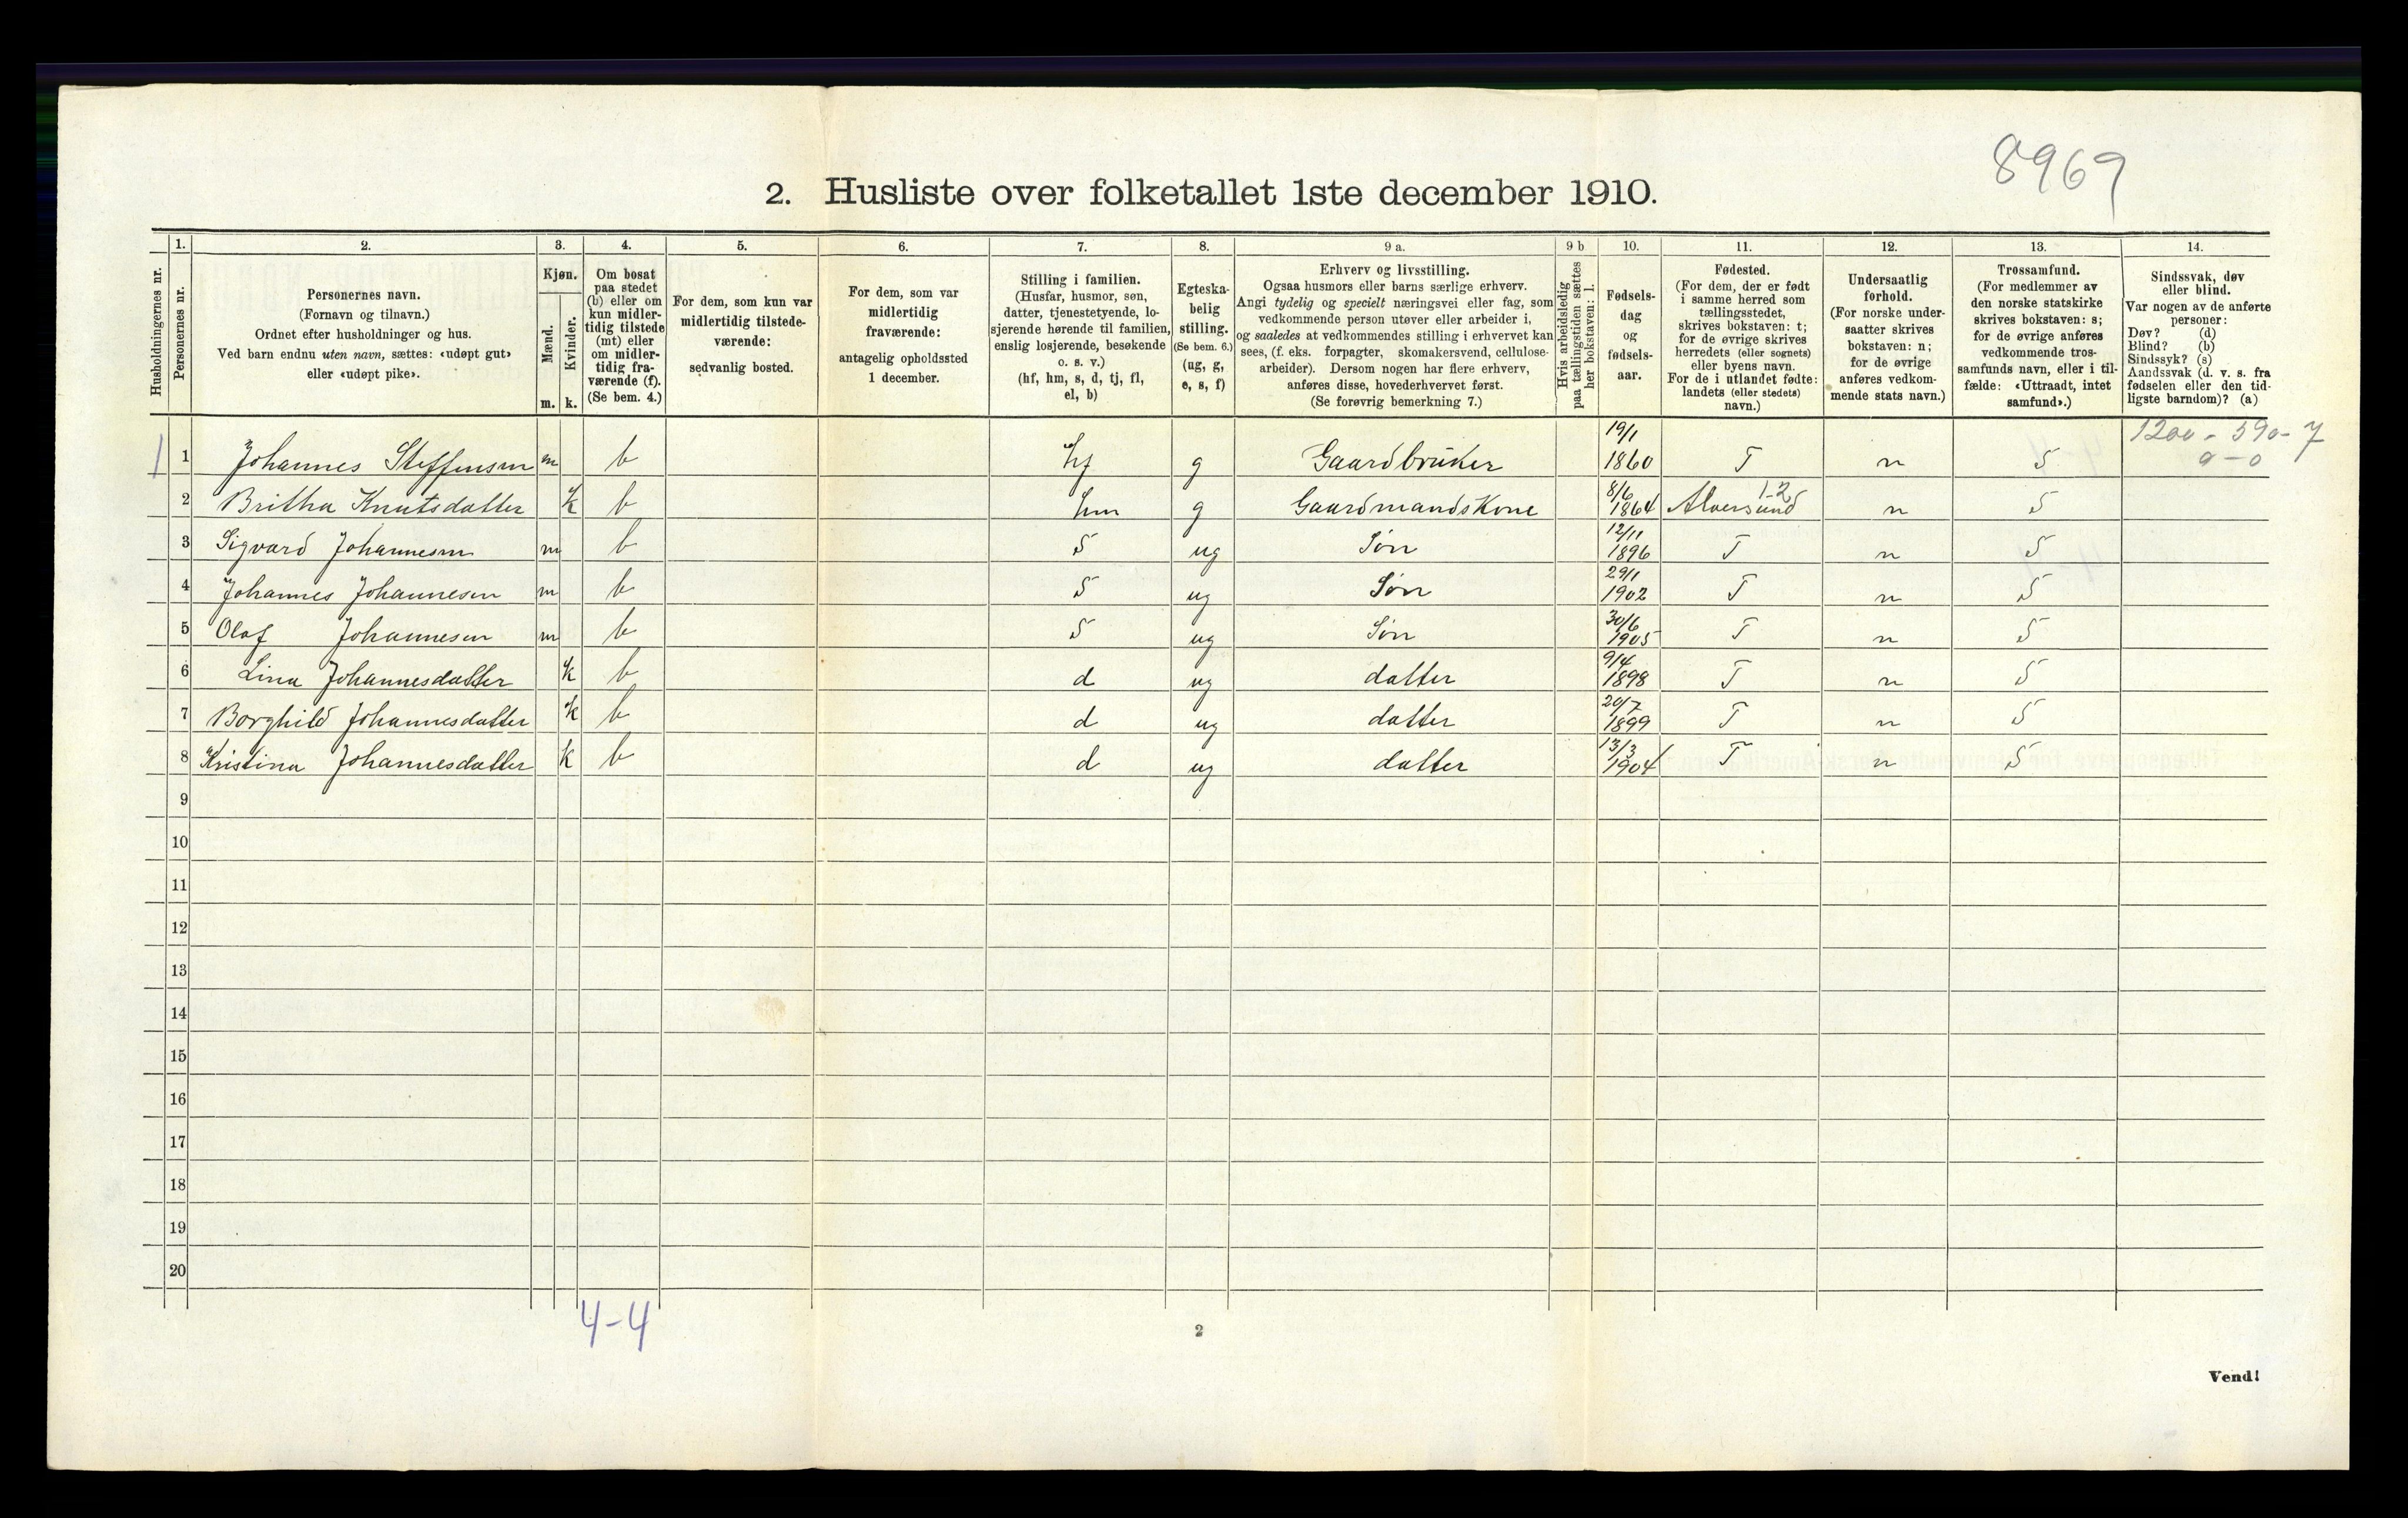 8969
2. Husliste over folketallet 1ste december 1910.
1. 2. 3. 4. 5. 6. 7. 8. 9 a. 9 b 10. 11. 12. 13. 14.
Husholdningernes nr.
Personernes nr.
Personernes navn.
(Fornavn og tilnavn.)
Ordnet efter husholdninger og hus.
Ved barn endnu uten navn, sættes: «udøpt gut»
eller «udøpt pike».
Kjøn.
Mænd.
Kvinder.
m. k.
Om bosat
paa stedet
(b) eller om
kun midler-
tidig tilstede
(mt) eller
om midler-
tidig fra-
værende (f).
(Se bem. 4.)
For dem, som kun var
midlertidig tilstede-
værende:
sedvanlig bosted.
For dem, som var
midlertidig
fraværende:
antagelig opholdssted
1 december.
Stilling i familien.
(Husfar, husmor, søn,
datter, tjenestetyende, lo-
sjerende hørende til familien,
enslig losjerende, besøkende
o. s. v.)
(hf, hm, s, d, tj, fl,
el, b)
Egteska-
belig
stilling.
(Se bem. 6.)
(ug, g,
e, s, f)
Erhverv og livsstilling.
Ogsaa husmors eller barns særlige erhverv.
Angi tydelig og specielt næringsvei eller fag, som
vedkommende person utøver eller arbeider i,
og saaledes at vedkommendes stilling i erhvervet kan
sees, (f. eks. forpagter, skomakersvend, cellulose-
arbeider). Dersom nogen har flere erhverv,
anføres disse, hovederhvervet først.
(Se forøvrig bemerkning 7.)
Hvis arbeidsledig
paa tællingstiden sættes
her bokstaven: l.
Fødsels-
dag
og
fødsels-
aar.
Fødested.
(For dem, der er født
i samme herred som
tællingsstedet,
skrives bokstaven: t;
for de øvrige skrives
herredets (eller sognets)
eller byens navn.
For de i utlandet fødte:
landets (eller stedets)
navn.)
Undersaatlig
forhold.
(For norske under-
saatter skrives
bokstaven: n;
for de øvrige
anføres vedkom-
mende stats navn.)
Trossamfund.
(For medlemmer av
den norske statskirke
skrives bokstaven: s;
for de øvrige anføres
vedkommende tros-
samfunds navn, eller i til-
fælde: «Uttraadt, intet
samfund».)
Sindssvak, døv
eller blind.
Var nogen av de anførte
personer:
Døv? (d)
Blind? (b)
Sindssyk? (s)
Aandssvak (d. v. s. fra
fødselen eller den tid-
ligste barndom)? (a)
1200 - 590 - 7
0 - 0
1 1 Johannes Steffensen m b hf g Gaardbruker 19/1 1860 T n S
2 Britha Knutsdatter k b hm g Gaardmandskone 8/6 1864 Alversund 1-2 n S
3 Sigvard Johannesen m b S ug Søn 12/11 1896 T n S
4 Johannes Johannesen m b S ug Søn 29/1 1902 T n S
5 Olaf Johannesen m b S ug Søn 30/6 1905 T n S
6 Lina Johannesdatter k b d ug datter 9/4 1898 T n S
7 Borghild Johannesdatter k b d ug datter 20/7 1899 T n S
8 Kristina Johannesdatter k b d ug datter 13/3 1904 T n S
9
10
11
12
13
14
15
16
17
18
19
20
4-4
2
Vend!